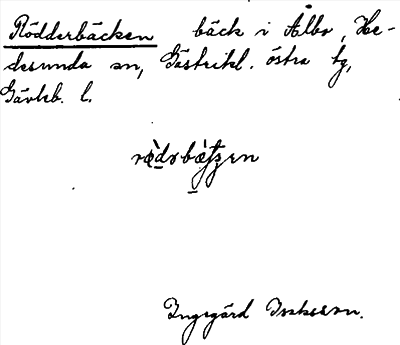 Rödderbäcken bäck i Ålbo, He-
desunda sn, Gästrikl. östra tg,
Gävleb. l.
Ingegärd Isaksson.